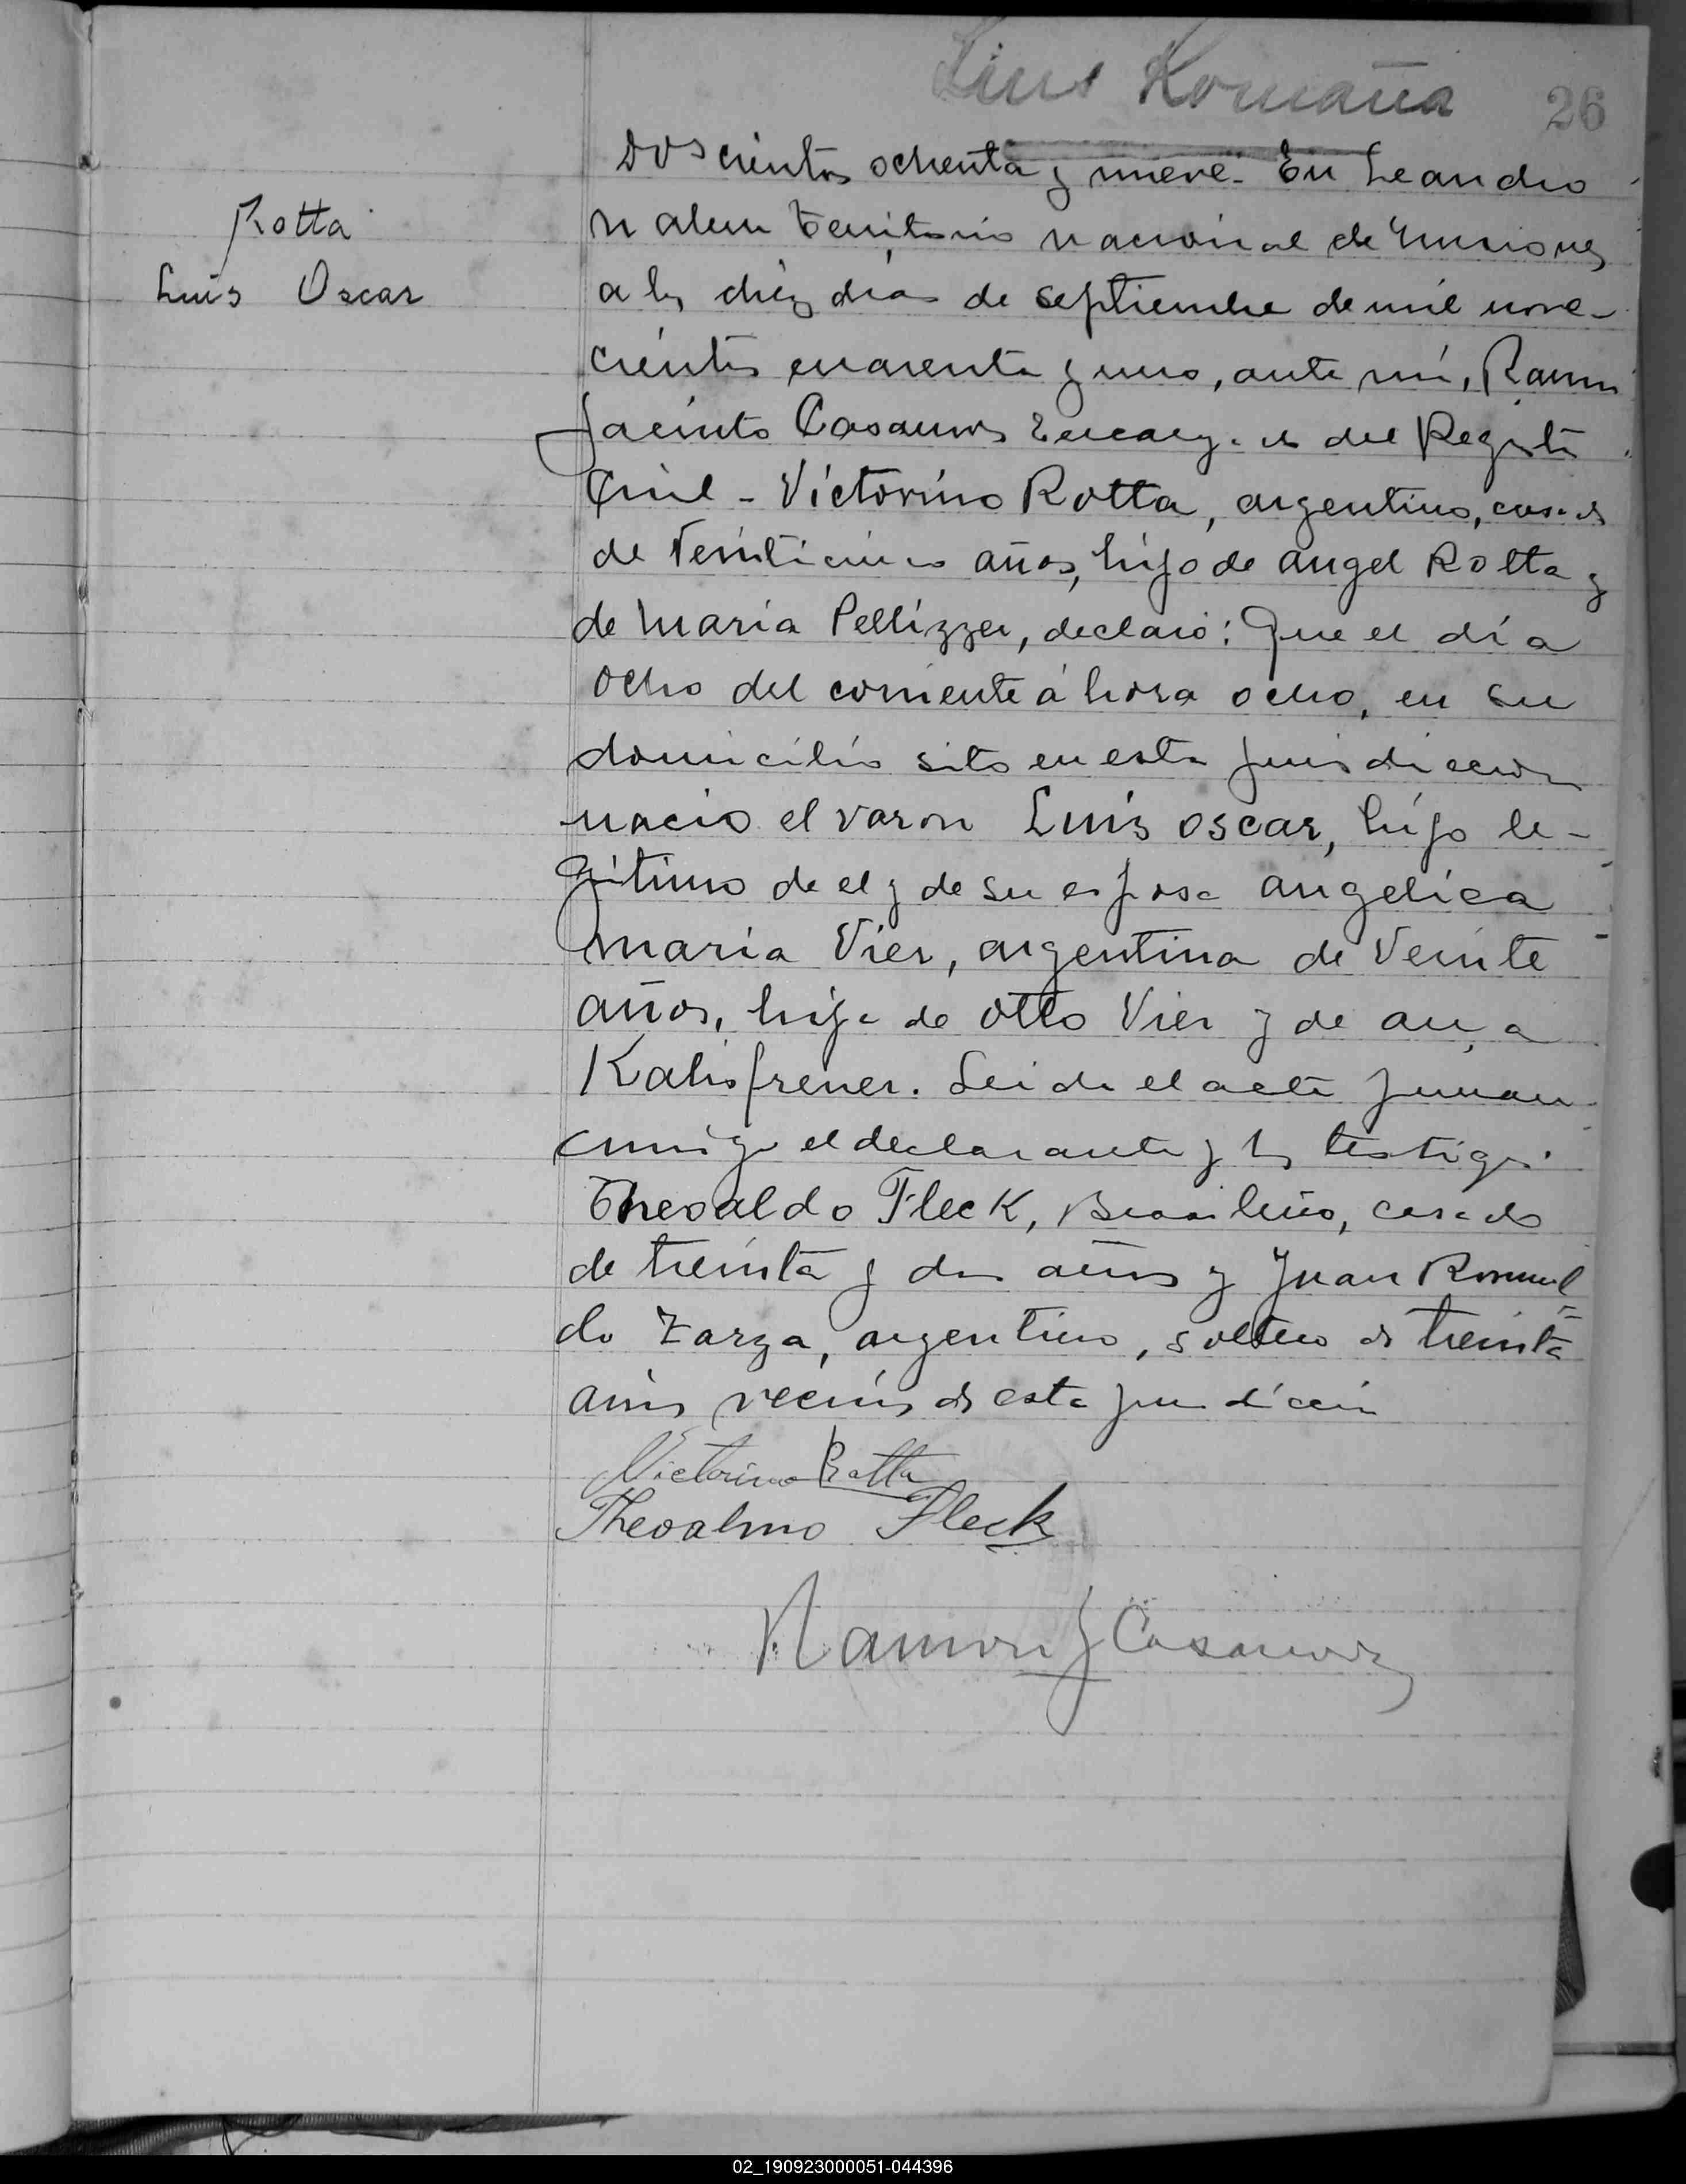 Luis Romaña
26
Rotta
Luis Oscar
Doscientos ochenta y nueve. En Leandro
N alem Territorio nacional de Misiones
a los diez dias de septiembre de mil nove-
cientos cuarenta y uno, ante mi, Ramon
Jacinto Casanova Encargado del Registro
Civil - Victorino Rotta, argentino, casado
de Veinticinco años, hijo de angel Rotta y
de Maria Pellizzer, declaró: Que el día
ocho del corriente á hora ocho, en su
domicilio sito en esta jurisdiccion
nacio el varon Luis oscar, hijo le-
gitimo de el y de su esposa angelica
maria Vier, argentina de Veinte
años, hija de otto Vier y de ana
Kalisfrener. Leida el acta firman
conmigo el declarante y los testigos
Theobaldo Fleck, Brasileño, casado
de treinta y dos años y Juan Romual
do Zarza, argentino, soltero de treinta
años vecinos de esta jurisdiccion
Victorino Rotta
Theoalmo Fleck
Ramon J Casanova
02_190923000051-044396